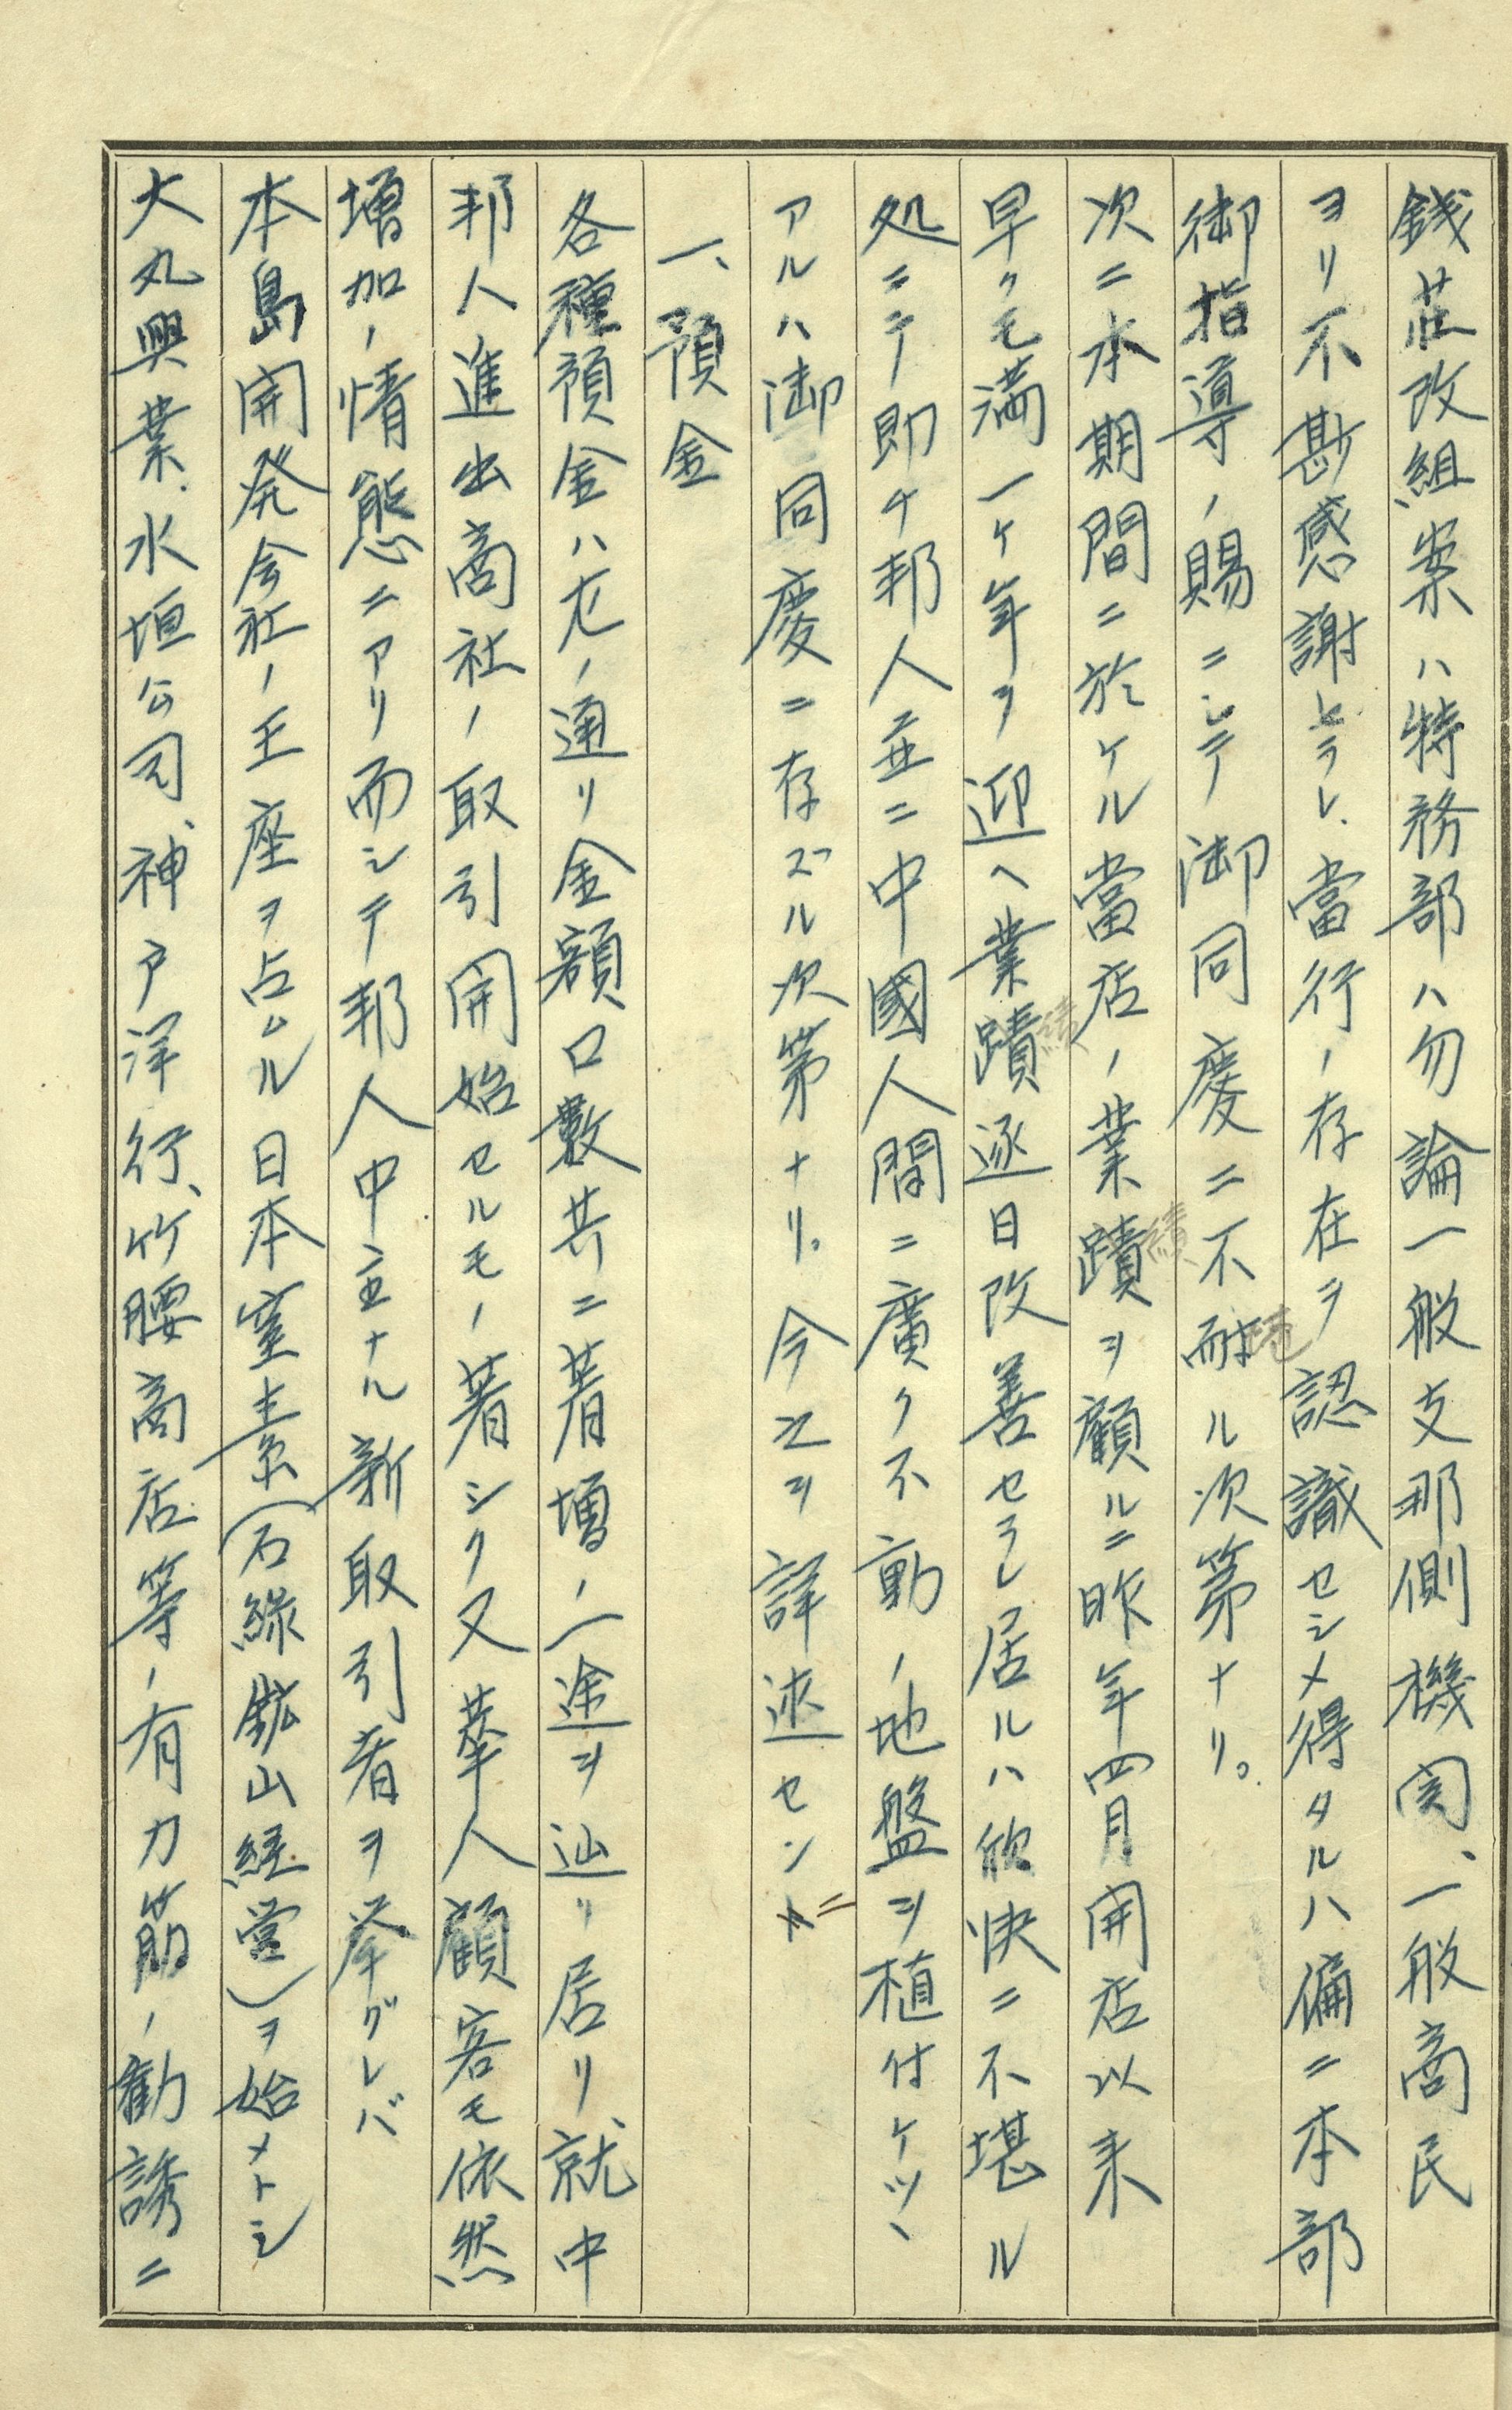 錢莊改組案ハ特務部ハ勿論一般支那側機関、一般商民
ヨリ不尠感謝セラレ、當行ノ存在ヲ認識セシメ得タルハ偏ニ本部
御指導ノ賜ニシテ御同慶ニ不耐ル次第ナリ。
次ニ本期間ニ於ケル當店ノ業蹟ヲ顧ルニ昨年四月開店以来
早クモ満一ケ年ヲ迎ヘ業蹟逐日改善セラレ居ルハ欣快ニ不堪ル
処ニテ即チ邦人並ニ中國人間ニ廣ク不動ノ地盤ヲ植付ケツヽ
アルハ御同慶ニ存ズル次第ナリ。今之ヲ詳述センニ
一、預金
各種預金ハ左ノ通リ金額口數共ニ著增ノ一途ヲ辿リ居リ、就中
邦人進出商社ノ取引開始セルモノ著シク又華人顧客モ依然
増加ノ情態ニアリ而シテ邦人中主ナル新取引者ヲ挙グレバ
本島開発会社ノ王座ヲ占ムル日本窒素(石緑鉱山経営)ヲ始メトシ
大丸興業、水垣公司、神戸洋行、竹腰商店等ノ有力筋ノ勧誘ニ
績
績